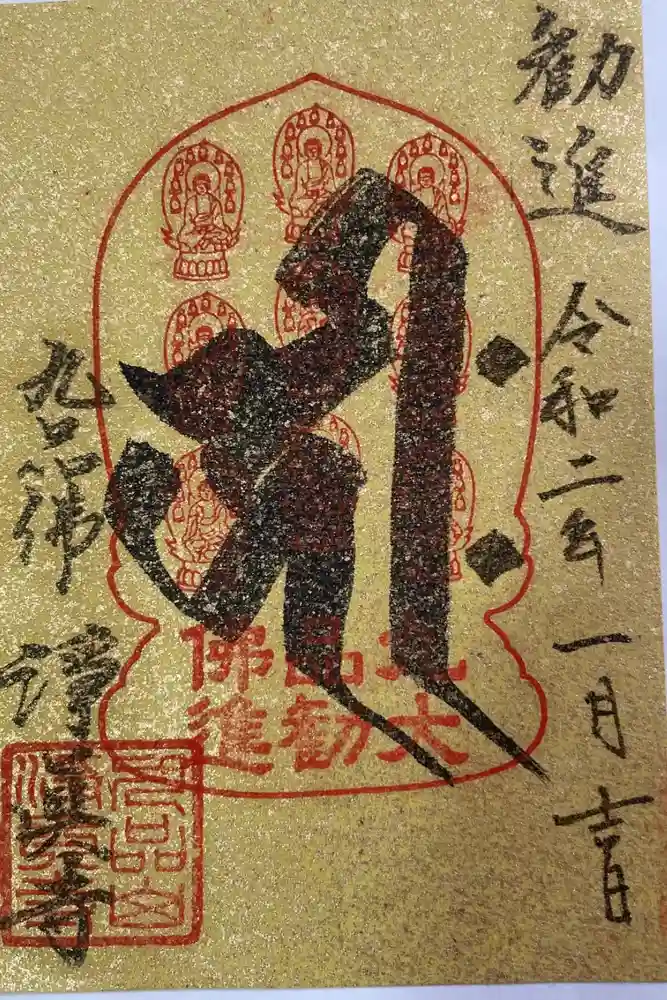 勧進
令和二年一月吉日
𑖮𑖿𑖨𑖱𑖾
九品佛
大勧進
九品佛
淨眞寺
九品山